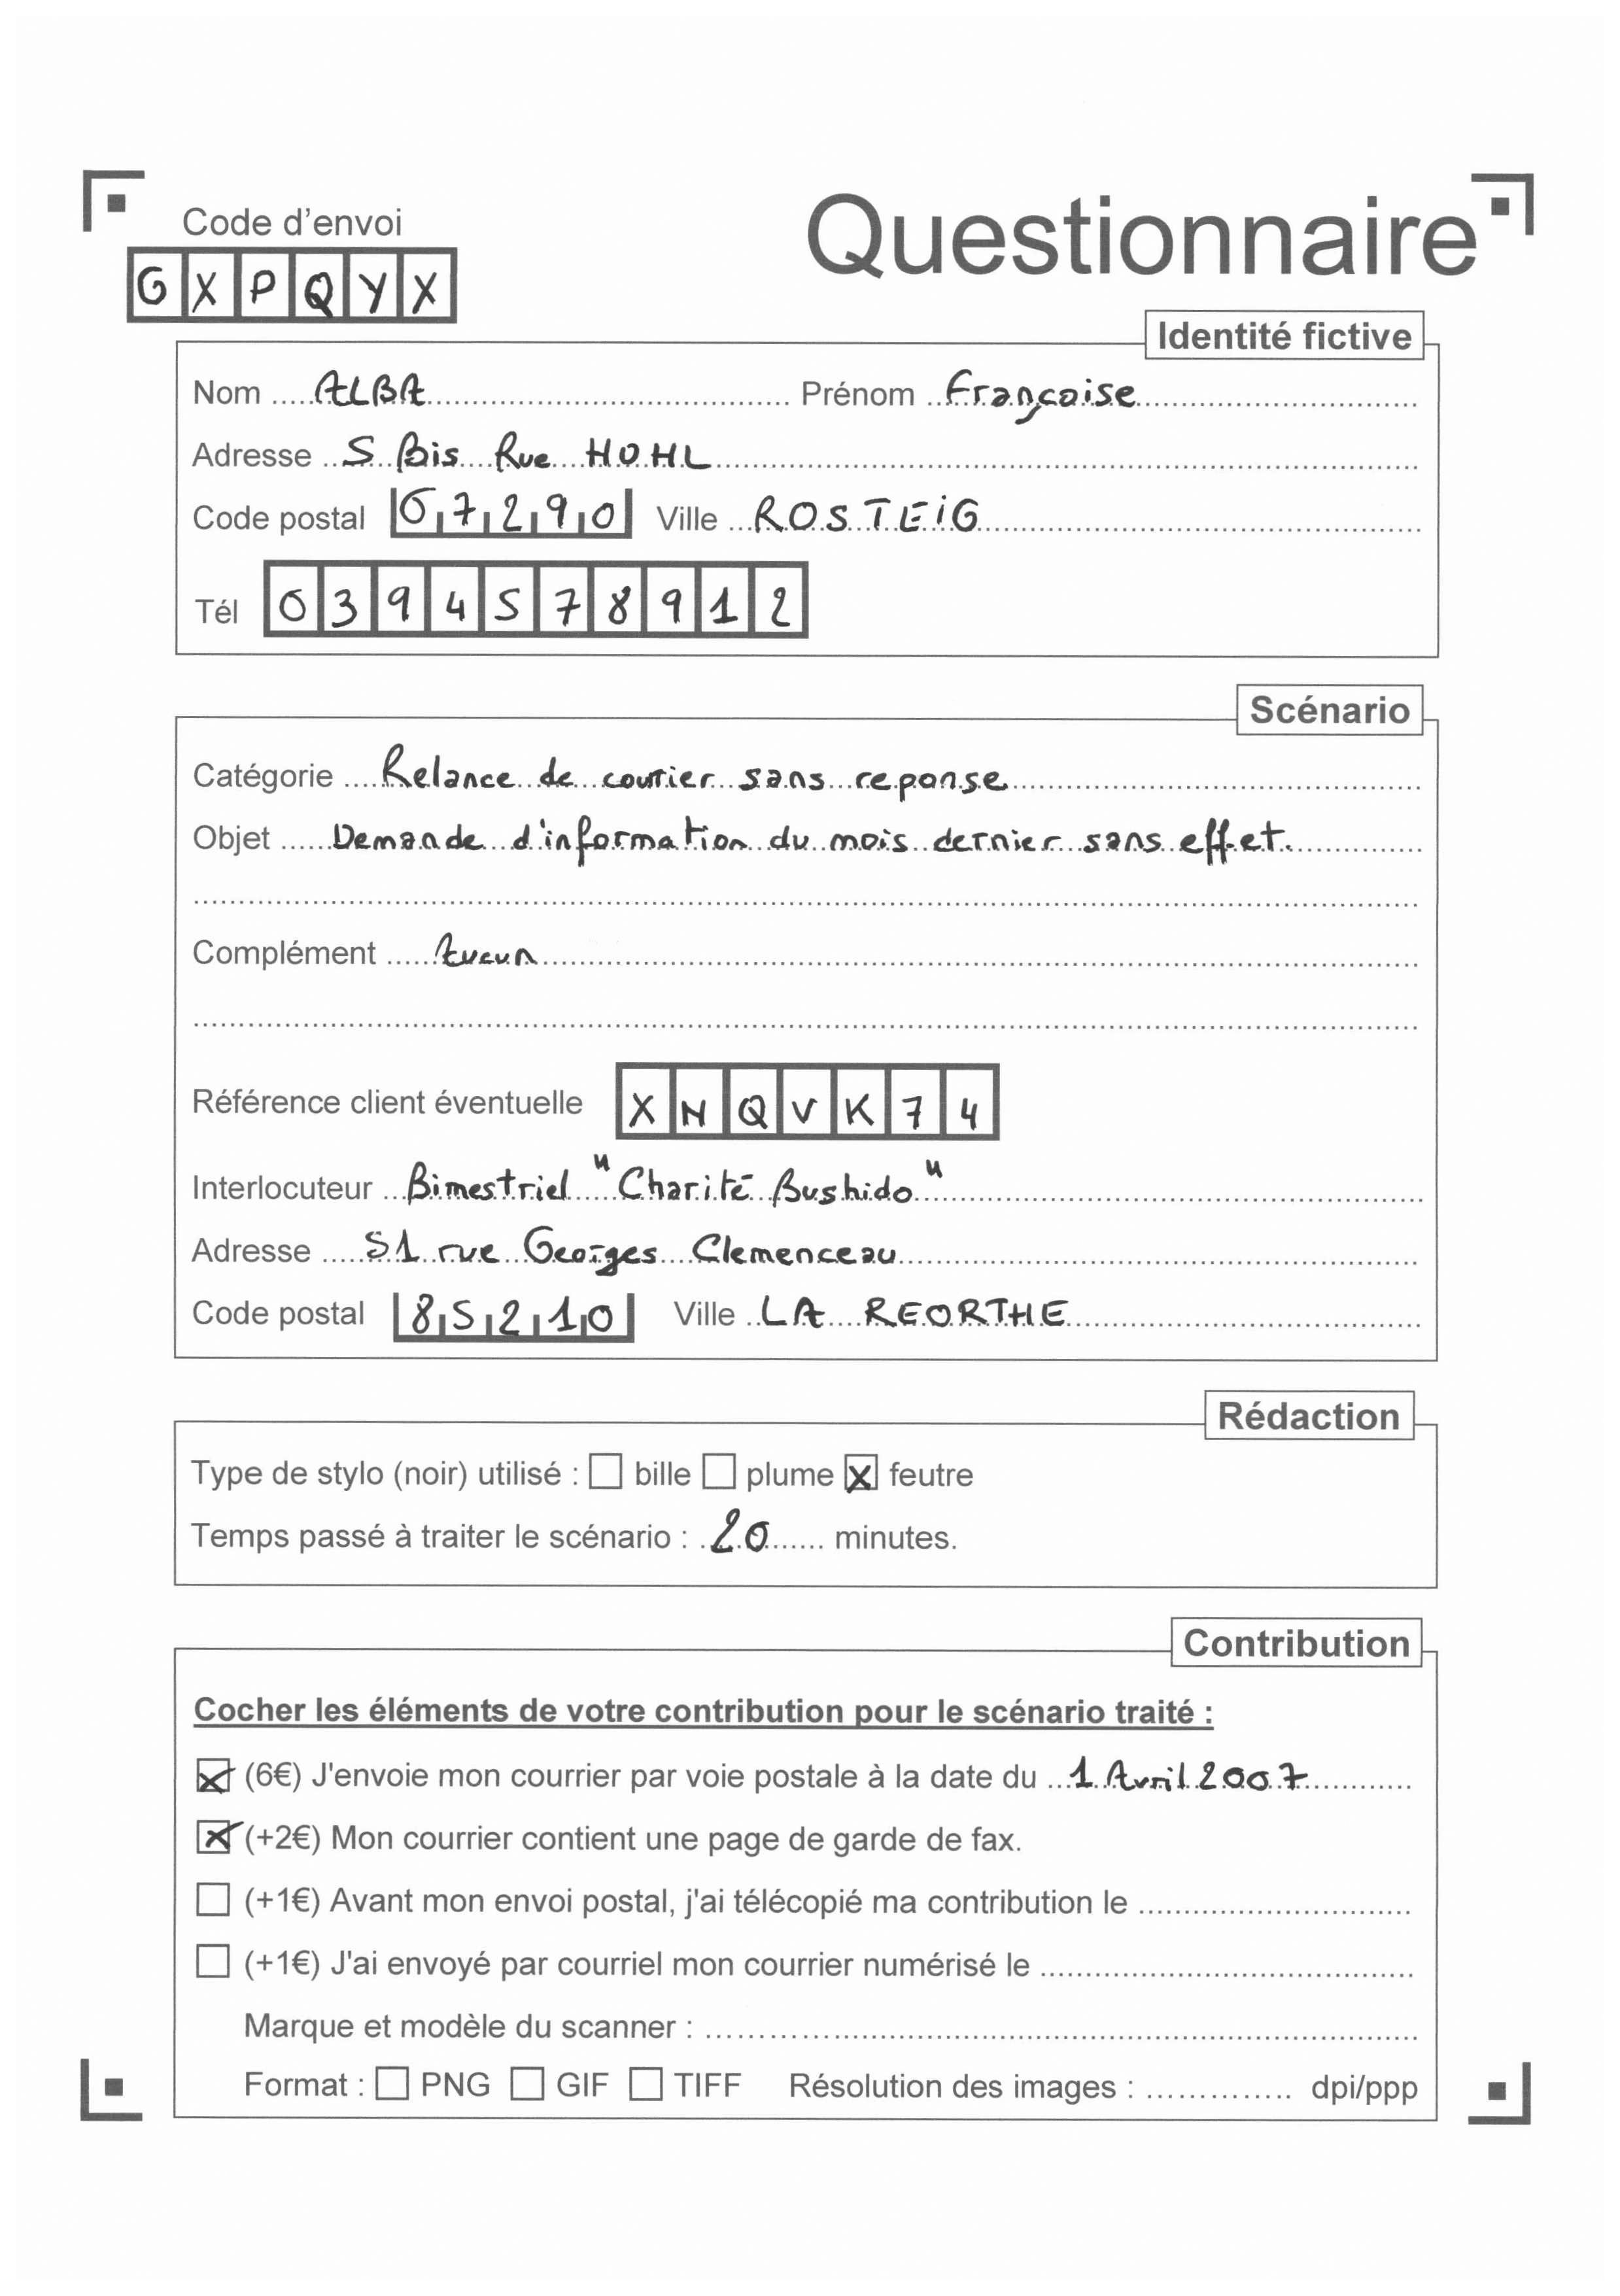 Code d'envoi
Questionnaire
GXPQYX
Identité fictive
Nom ALBA Prénom Françoise
Adresse 5 Bis Rue HOHL
Code postal 67290 Ville ROSTEIG
Tél 0394578912
Scénario
Catégorie Relance de courrier sans reponse
Objet Demande d'information du mois dernier sans effet.
Complément Aucun
Référence client éventuelle XNQVK74
Interlocuteur Bimestriel "Charité Bushido"
Adresse 51 rue Georges Clemenceau
Code postal 85210 Ville LA REORTHE
Rédaction
Type de stylo (noir) utilisé : ☐ bille ☐ plume ☒ feutre
Temps passé à traiter le scénario : 20 minutes.
Contribution
Cocher les éléments de votre contribution pour le scénario traité :
☒ (6€) J'envoie mon courrier par voie postale à la date du 1 Avril 2007
☒ (+2€) Mon courrier contient une page de garde de fax.
☐ (+1€) Avant mon envoi postal, j'ai télécopié ma contribution le
☐ (+1€) J'ai envoyé par courriel mon courrier numérisé le
Marque et modèle du scanner :
Format : ☐ PNG ☐ GIF ☐ TIFF Résolution des images : dpi/ppp